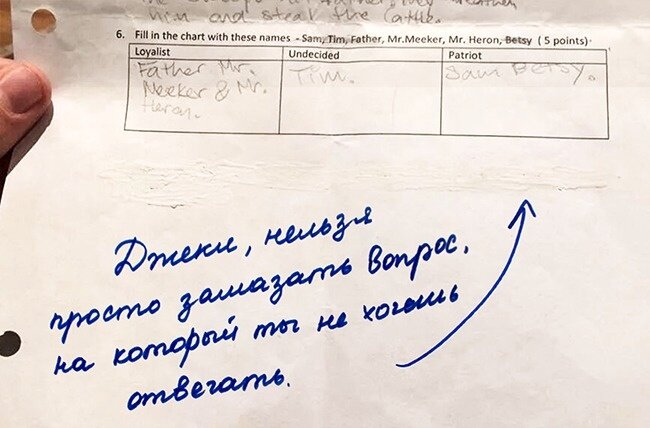 him and steal the cattle.
6. Fill in the chart with these names - Sam, Tim, Father, Mr.Meeker, Mr. Heron, Betsy ( 5 points)
Loyalist Undecided Patriot
Father, Mr. Tim. Sam Betsy.
Meeker & Mr.
Heron.
Джеки, нельзя
просто замазать вопрос,
на который ты не хочешь
отвечать.